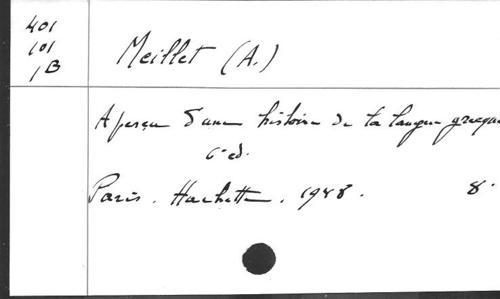 401
101
1B
Meillet (A.)
Aperçu d'une histoire de la langue grecque
6e ed.
Paris. Hachette. 1948. 8°